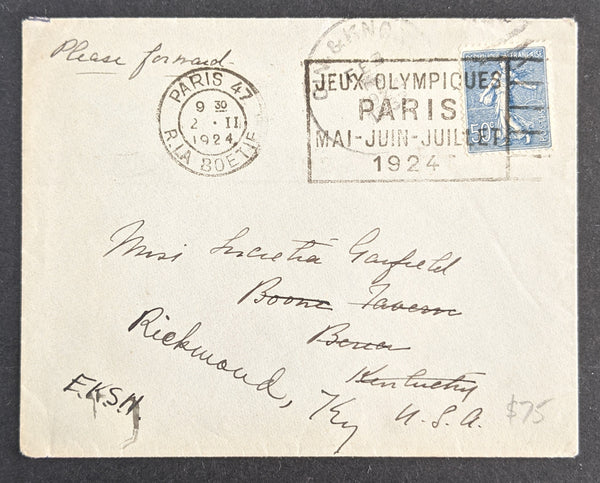 Please forward
PARIS 47
9 30
2 · II
1924
R. LA BOETIE
JEUX OLYMPIQUES
PARIS
MAI-JUIN-JUILLET
1924
FRANÇAISE
50c
Miss Lucretia Garfield
Boone Tavern
Berea
Kentucky
Richmond, Ky
U.S.A.
E.K.S.N.
$75